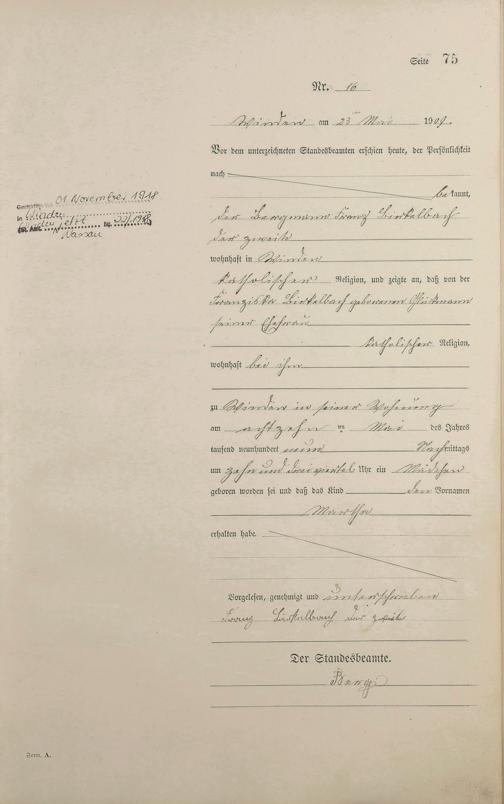 Seite 75
Nr. 16
Winden am 25 Mai 1909.
Vor dem unterzeichneten Standesbeamten erschien heute, der Persönlichkeit
nach
bekannt,
der Bergmann Franz Birkelbach
der zweite
wohnhaft in Winden
katholischer Religion, und zeigte an, daß von der
Franziska Birkelbach geborenen
seiner Ehefrau
katholischer Religion,
wohnhaft bei ihm
zu Winden in seiner Wohnung
am achtzehn ten Mai des Jahres
tausend neunhundert neun Nachmittags
um zehn und dreiviertel Uhr ein Mädchen
geboren worden sei und daß das Kind den Vornamen
Martha
erhalten habe.
Vorgelesen, genehmigt und unterschrieben
Franz Birkelbach der zweite
Der Standesbeamte.
01 November 1918
in Winden
jetzt
Nassau
Form. A.